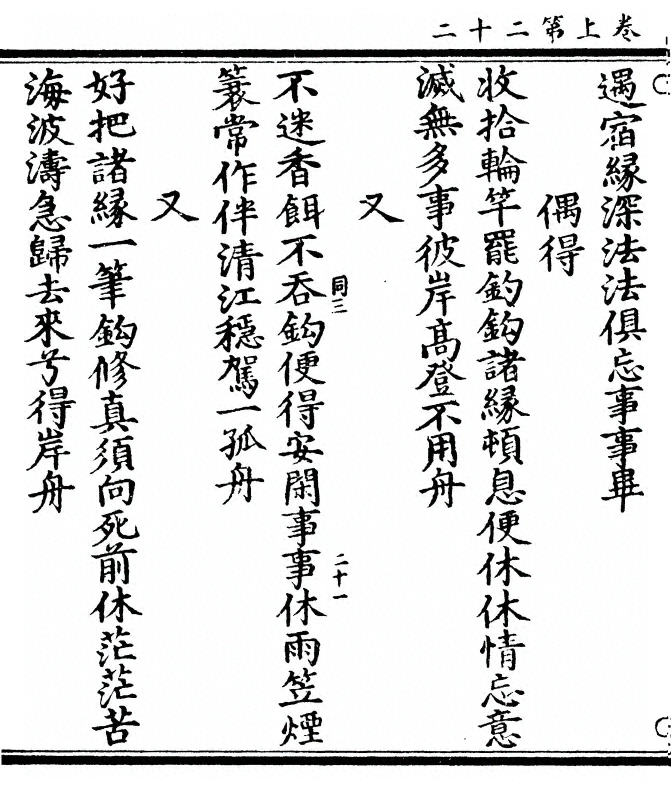 卷上第二十二
遇宿緣深法法俱忘事事畢
偶得
收拾輪竿罷釣鈎諸緣頓息便休休情忘意
滅無多事彼岸高登不用舟
又
同三
二十一
不迷香餌不吞鈎便得安閑事事休雨笠煙
簑常作伴清江穩駕一孤舟
又
好把諸緣一筆鈎修真須向死前休茫茫苦
海波濤急歸去來兮得岸舟